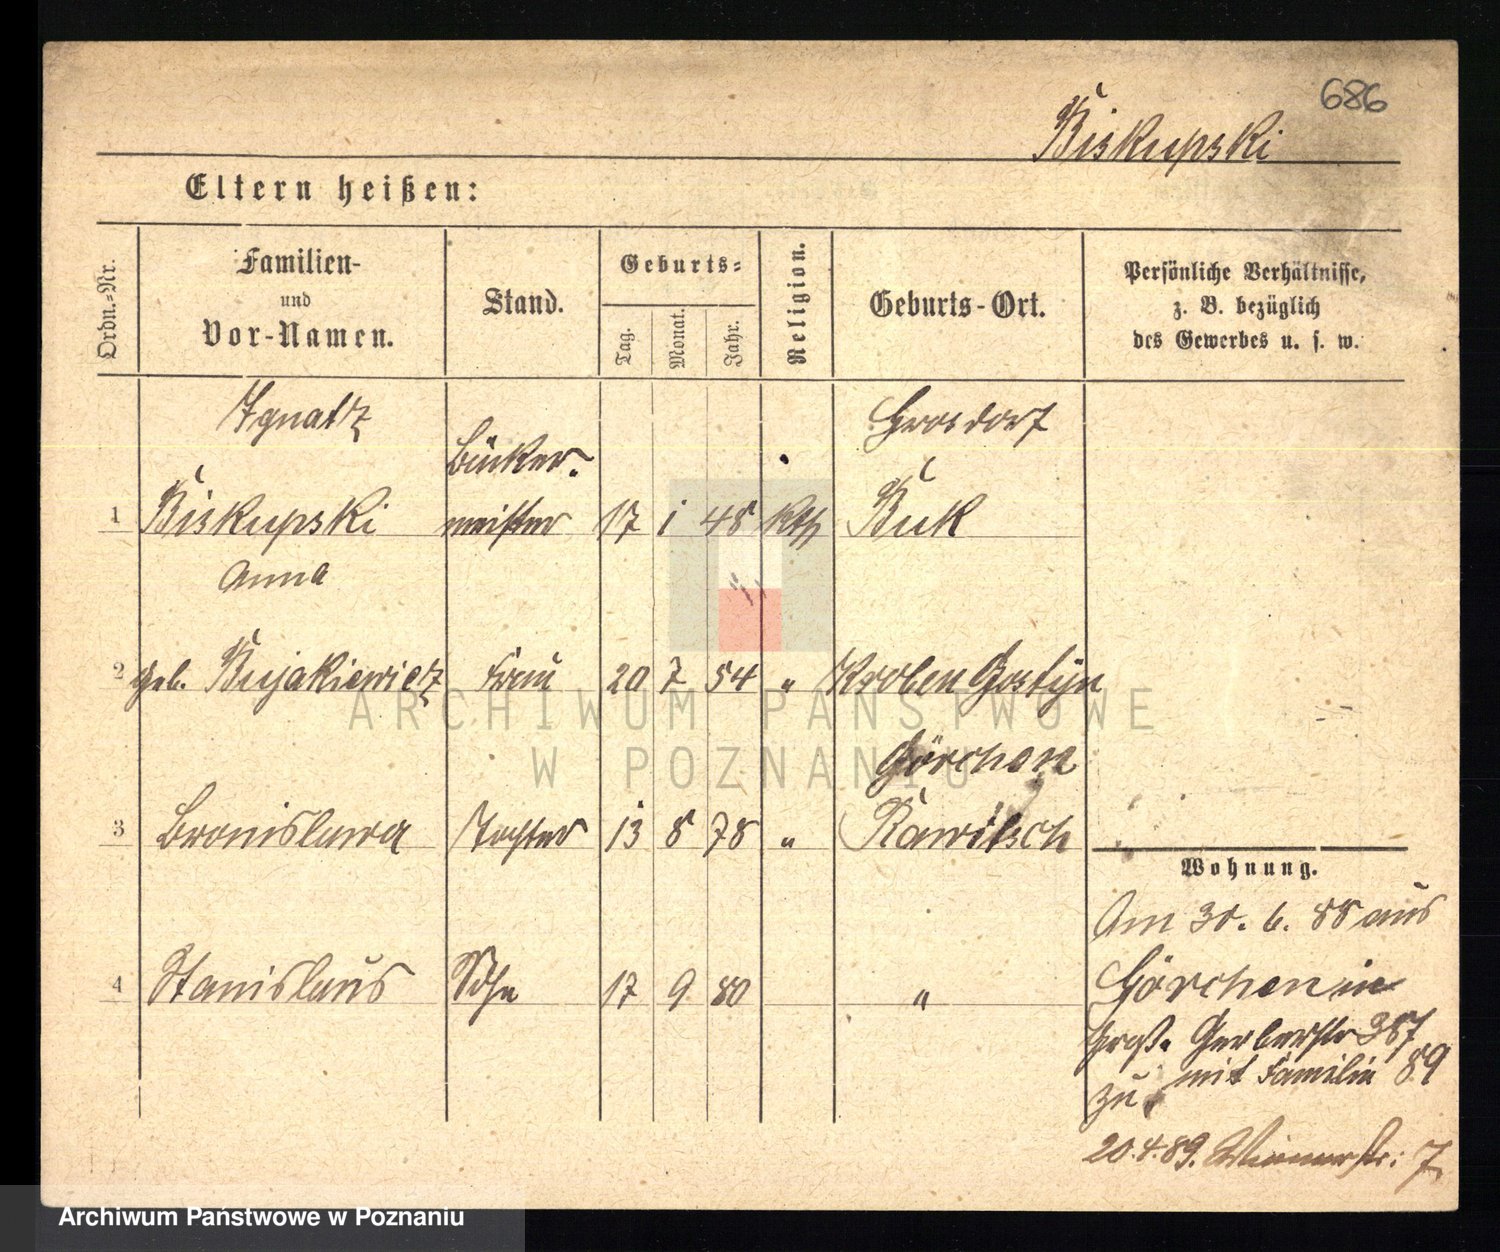 686
Biskupski
Eltern heißen:
Ordn.-Nr.
Familien-
und
Vor-Namen.
Stand.
Geburts-
Tag.
Monat.
Jahr.
Religion.
Geburts-Ort.
Persönliche Verhältnisse,
z. B. bezüglich
des Gewerbes u. s. w.
Ignatz
Grosdorf
Bäcker-
1 Biskupski meister 17 1 48 kth Buk
Anna
2 geb. Bujakiewicz Frau 20 7 54 " Kroben Gostyn
Görchen
3 Bronislawa Tochter 13 8 78 " Rawitsch
Wohnung.
Am 30. 6. 88 aus
4 Stanislaus Sohn 17 9 80 "
Görchen in
Groß. Gerberstr 387
zu mit Familie 89
20.4.89. Wienerstr: 7
ARCHIWUM PAŃSTWOWE
W POZNANIU
Archiwum Państwowe w Poznaniu